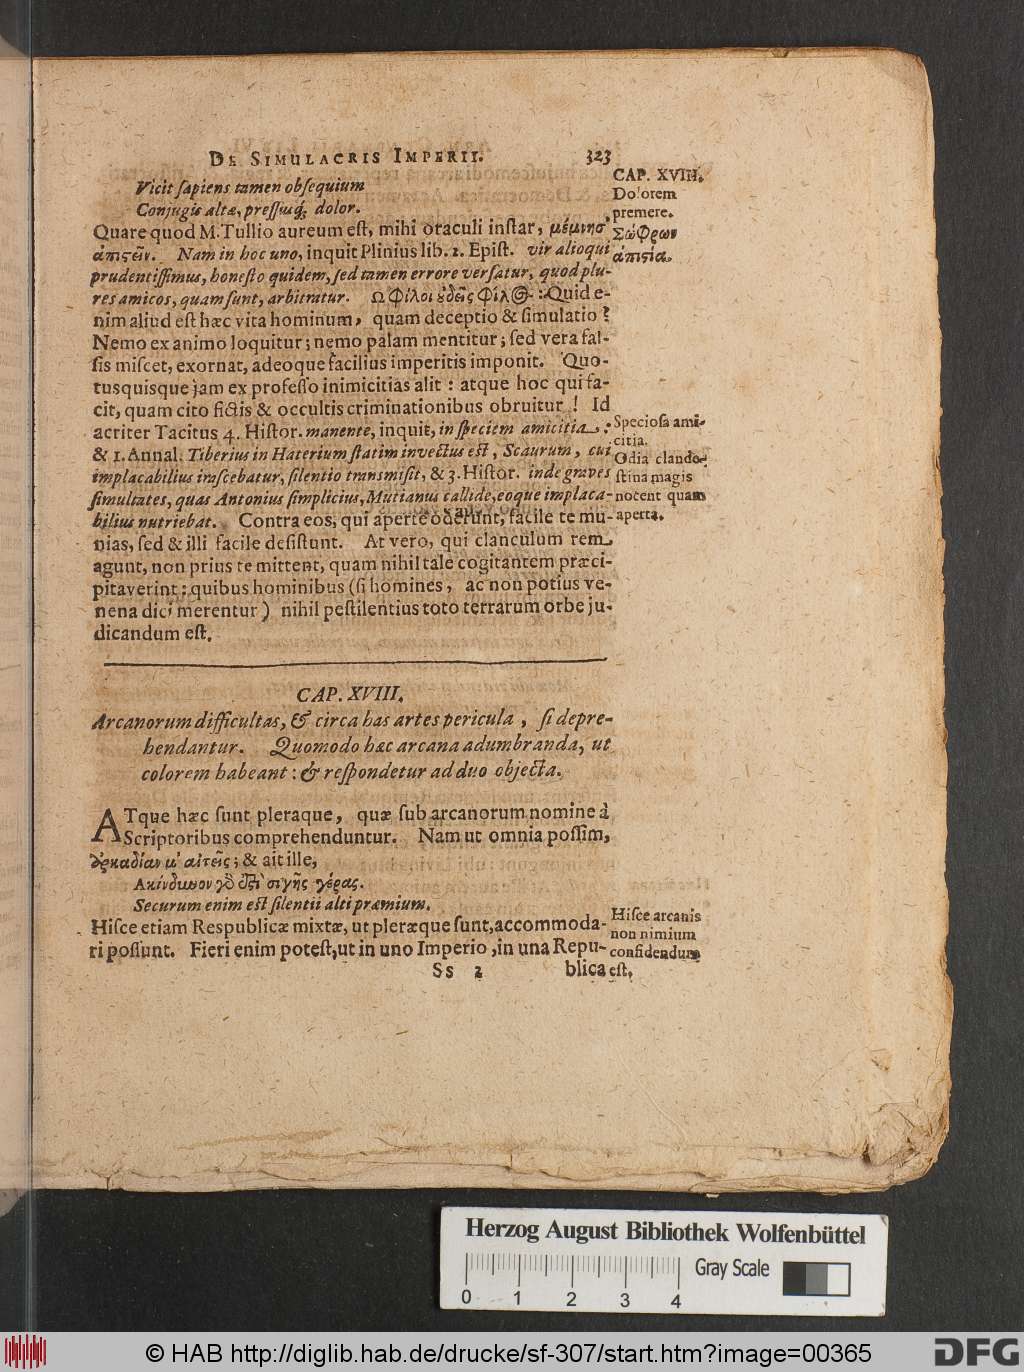 DE SIMULACRIS IMPERII. 323
Vicit sapiens tamen obsequium
Conjugis altæ, pressitq́; dolor.
Quare quod M. Tullio aureum est, mihi oraculi instar, μέμνησ'
ἀπιστεῖν. Nam in hoc uno, inquit Plinius lib. 1. Epist. vir alioqui
prudentissimus, honesto quidem, sed tamen errore versatur, quod plu-
res amicos, quam sunt, arbitratur. Ω φίλοι οὐδεὶς φίλος: Quid e-
nim aliud est hæc vita hominum, quam deceptio & simulatio?
Nemo ex animo loquitur; nemo palam mentitur; sed vera fal-
sis miscet, exornat, adeoque facilius imperitis imponit. Quo-
tusquisque jam ex professo inimicitias alit: atque hoc qui fa-
cit, quam cito fictis & occultis criminationibus obruitur! Id
acriter Tacitus 4. Histor. manente, inquit, in speciem amicitia:
& 1. Annal. Tiberius in Haterium statim invectus est, Scaurum, cui
implacabilius irascebatur, silentio transmisit, & 3. Histor. inde graves
simultates, quas Antonius simplicius, Mutianus callide, eoque implaca-
bilius nutriebat. Contra eos, qui aperte oderunt, facile te mu-
nias, sed & illi facile desistunt. At vero, qui clanculum rem
agunt, non prius te mittent, quam nihil tale cogitantem præci-
pitaverint: quibus hominibus (si homines, ac non potius ve-
nena dici merentur) nihil pestilentius toto terrarum orbe ju-
dicandum est.
CAP. XVIII.
Dolorem
premere.
Σώφρων
ἀπιστία.
Speciosa ami-
citia.
Odia clande-
stina magis
nocent quam
aperta.
CAP. XVIII.
Arcanorum difficultas, & circa has artes pericula, si depre-
hendantur. Quomodo hæc arcana adumbranda, ut
colorem habeant: & respondetur ad duo objecta.
ATque hæc sunt pleraque, quæ sub arcanorum nomine à
Scriptoribus comprehenduntur. Nam ut omnia possim,
ἀρκαδίαν μ' αἰτεῖς; & ait ille,
Ακίνδυνον γὸ ἐστὶ σιγῆς γέρας.
Securum enim est silentii alti præmium.
Hisce etiam Respublicæ mixtæ, ut pleræque sunt, accommoda-
ri possunt. Fieri enim potest, ut in uno Imperio, in una Repu-
Ss 2 blica
Hisce arcanis
non nimium
confidendum
est.
Herzog August Bibliothek Wolfenbüttel
Gray Scale
0 1 2 3 4
© HAB http://diglib.hab.de/drucke/sf-307/start.htm?image=00365
DFG